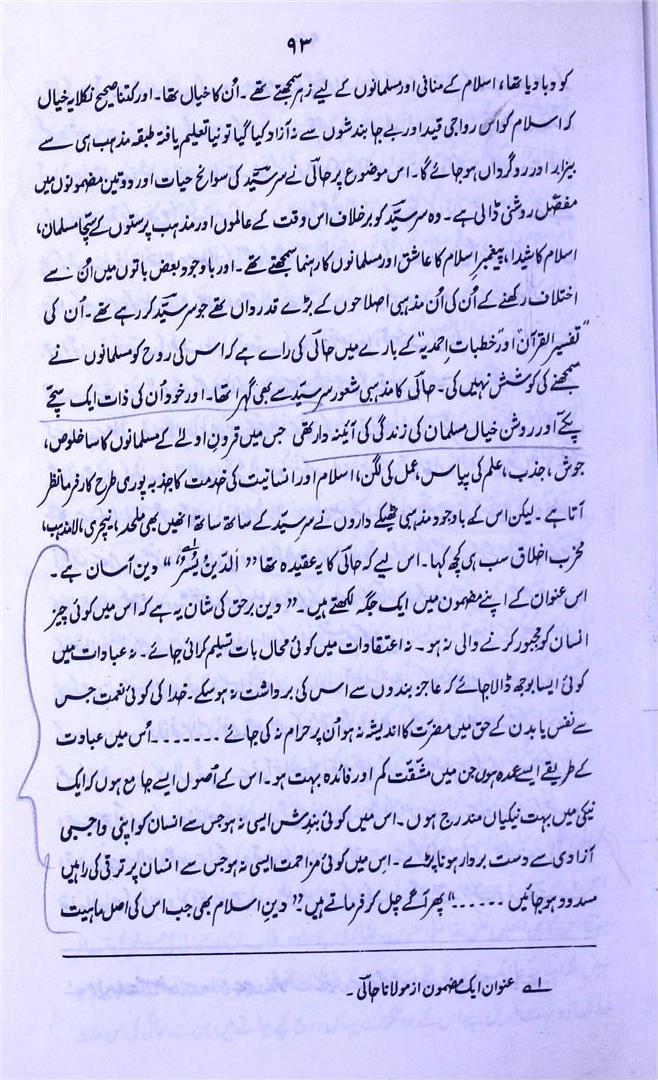 ۹۳
کو دبا دیا تھا، اسلام کے منافی اور مسلمانوں کے لیے زہر سمجھتے تھے۔ اُن کا خیال تھا۔ اور کتنا صحیح نکلا یہ خیال
کہ اسلام کو اس رواجی قید اور بے جا بندشوں سے نہ آزاد کیا گیا تو نیا تعلیم یافتہ طبقہ مذہب ہی سے
بیزار اور روگرداں ہو جائے گا۔ اس موضوع پر حالؔی نے سرسیّد کی سوانح حیات اور دو تین مضمونوں میں
مفصّل روشنی ڈالی ہے۔ وہ سرسیّد کو برخلاف اس وقت کے عالموں اور مذہب پرستوں کے سچّا مسلمان،
اسلام کا شیدا، پیغمبرِ اسلام کا عاشق اور مسلمانوں کا رہنما سمجھتے تھے۔ اور باوجود بعض باتوں میں اُن سے
اختلاف رکھنے کے اُن کی اُن مذہبی اصلاحوں کے بڑے قدرداں تھے جو سرسیّد کر رہے تھے۔ اُن کی
"تفسیر القرآن" اور "خطبات احمدیہ" کے بارے میں حالؔی کی رائے ہے کہ اس کی روح کو مسلمانوں نے
سمجھنے کی کوشش نہیں کی۔ حالؔی کا مذہبی شعور سرسیّد سے بھی گہرا تھا۔ اور خود اُن کی ذات ایک سچّے
پکّے اور روشن خیال مسلمان کی زندگی کی آئینہ دار تھی جس میں قرونِ اولےٰ کے مسلمانوں کا سا خلوص،
جوش، جذب، علم کی پیاس، عمل کی لگن، اسلام اور انسانیت کی خدمت کا جذبہ پوری طرح کارفرما نظر
آتا ہے۔ لیکن اس کے باوجود مذہبی ٹھیکے داروں نے سرسیّد کے ساتھ ساتھ انھیں بھی ملحد، نیچری، لامذہب،
مخرّب اخلاق سب ہی کچھ کہا۔ اس لیے کہ حالؔی کا یہ عقیدہ تھا "اَلدِّینُ یُسْرٌ" ۱؎ دین آسان ہے۔
اس عنوان کے اپنے مضمون میں ایک جگہ لکھتے ہیں۔ "دین برحق کی شان یہ ہے کہ اس میں کوئی چیز
انسان کو مجبور کرنے والی نہ ہو۔ نہ اعتقادات میں کوئی محال بات تسلیم کرائی جائے۔ نہ عبادات میں
کوئی ایسا بوجھ ڈالا جائے کہ عاجز بندوں سے اس کی برداشت نہ ہو سکے۔ خدا کی کوئی نعمت جس
سے نفس یا بدن کے حق میں مضرّت کا اندیشہ نہ ہو اُن پر حرام نہ کی جائے ۔۔۔۔۔۔۔ اُس میں عبادت
کے طریقے ایسے عمدہ ہوں جن میں مشقّت کم اور فائدہ بہت ہو۔ اس کے اُصول ایسے جامع ہوں کہ ایک
نیکی میں بہت نیکیاں مندرج ہوں۔ اس میں کوئی بندش ایسی نہ ہو جس سے انسان کو اپنی واجبی
آزادی سے دست بردار ہونا پڑے۔ اس میں کوئی مزاحمت ایسی نہ ہو جس سے انسان پر ترقی کی راہیں
مسدود ہو جائیں ۔۔۔۔۔۔" پھر آگے چل کر فرماتے ہیں۔ "دینِ اسلام بھی جب اس کی اصل ماہیت
۱؎ عنوان ایک مضمون از مولانا حالؔی۔